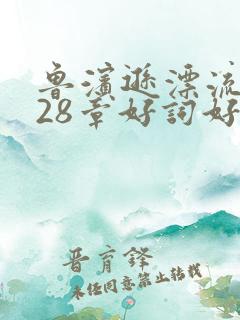 鲁滨逊漂流
28章好词好
晋育锋
未经同意禁止转载